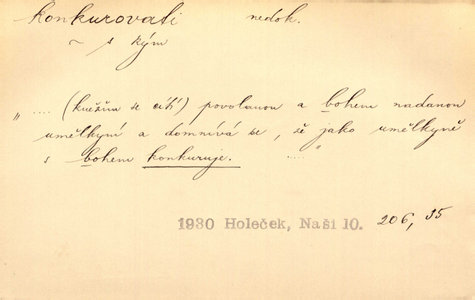 konkurovati nedok.
~ s kým
".... (kněžna se cítí) povolanou a bohem nadanou
umělkyní a domnívá se, že jako umělkyně
s bohem konkuruje. ...."
1930 Holeček, Naši 10. 206, 35